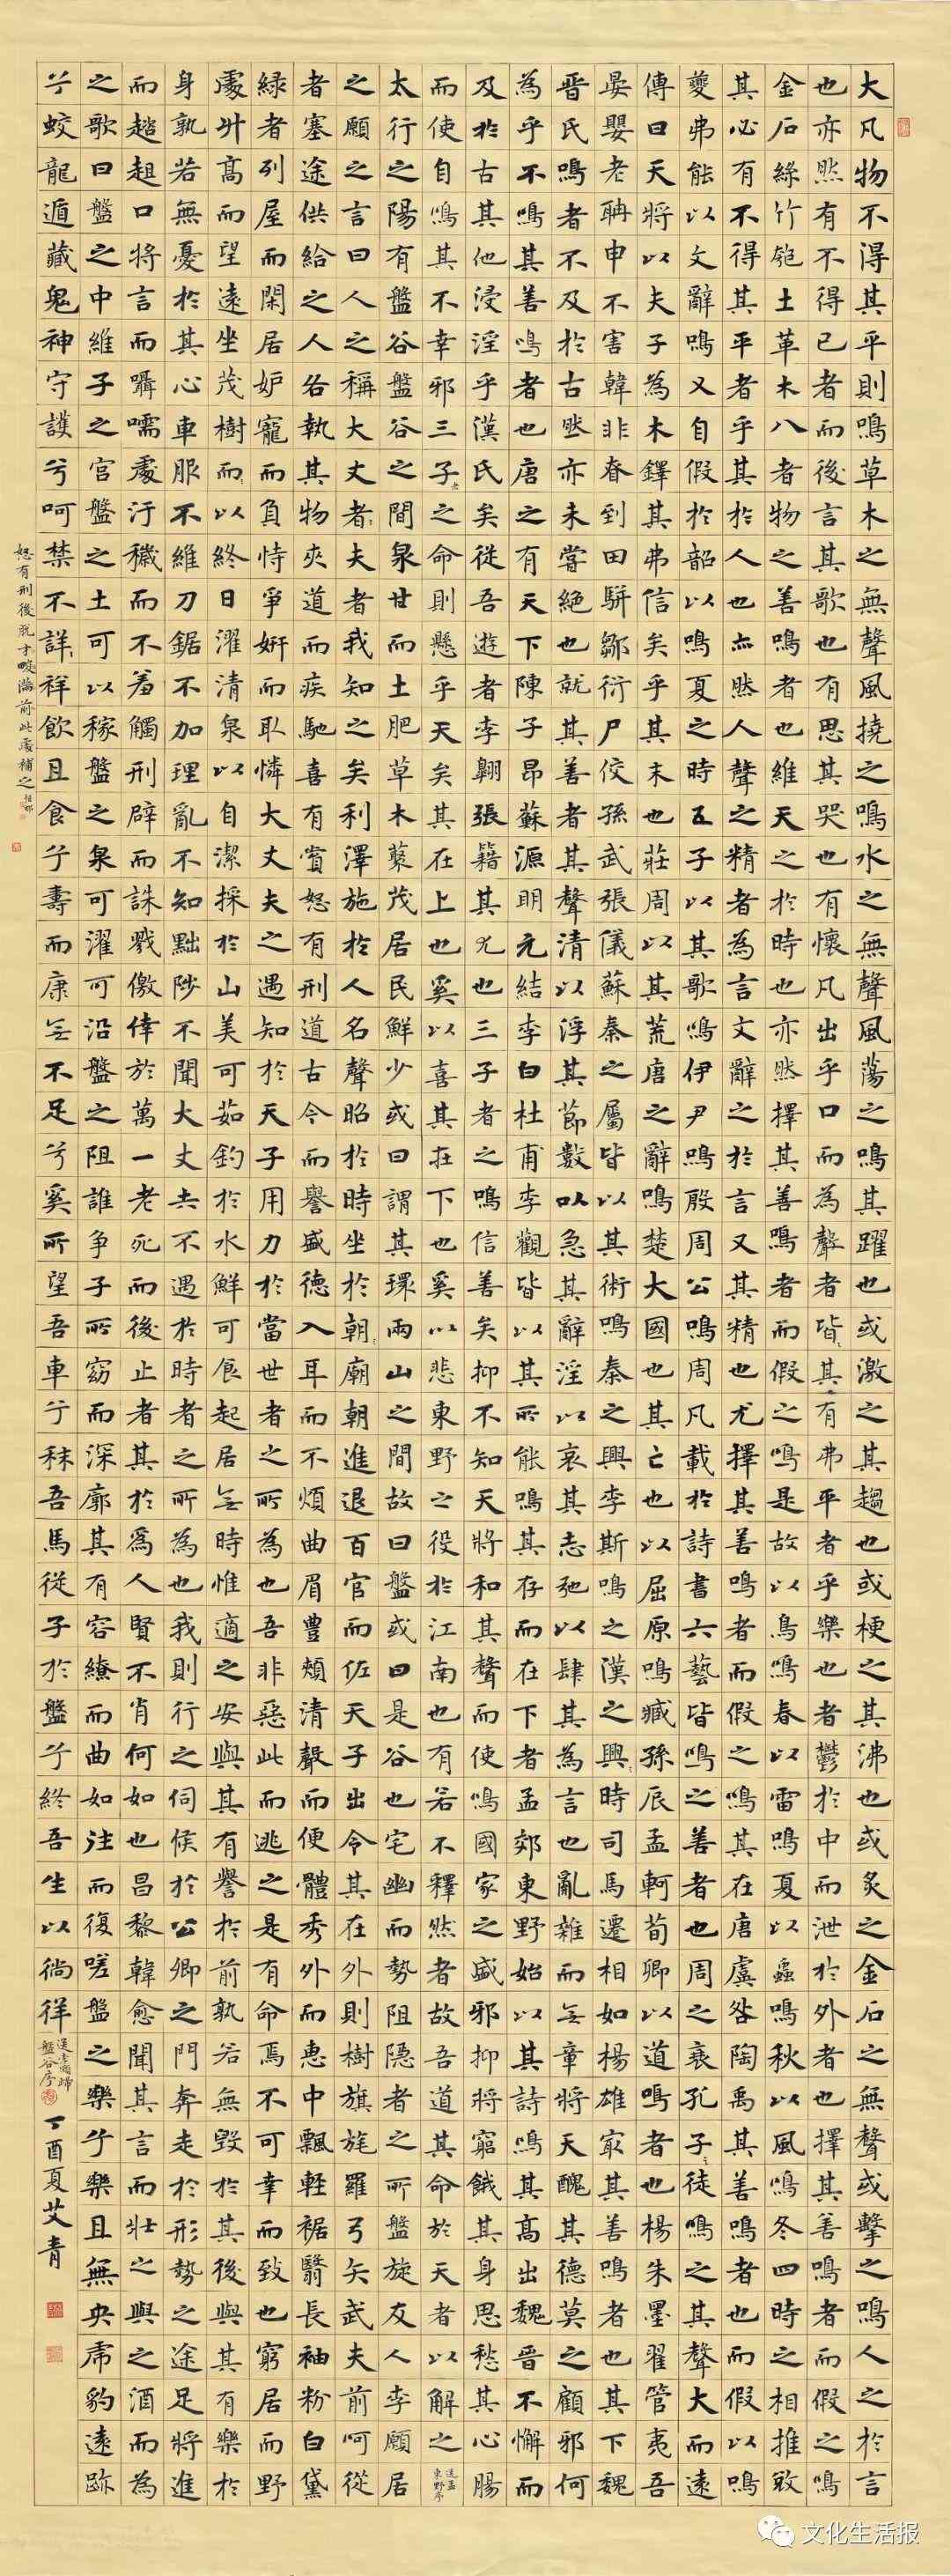 大凡物不得其平則鳴草木之無聲風撓之鳴水之無聲風蕩之鳴其躍也或激之其趨也或梗之其沸也或炙之金石之無聲或擊之鳴人之於言
也亦然有不得已者而後言其歌也有思其哭也有懷凡出乎口而為聲者皆其有弗平者乎樂也者鬱於中而泄於外者也擇其善鳴者而假之鳴
金石絲竹匏土革木八者物之善鳴者也維天之於時也亦然擇其善鳴者而假之鳴是故以鳥鳴春以雷鳴夏以蟲鳴秋以風鳴冬四時之相推敚
其必有不得其平者乎其於人也亦然人聲之精者為言文辭之於言又其精也尤擇其善鳴者而假之鳴其在唐虞咎陶禹其善鳴者也而假以鳴
夔弗能以文辭鳴又自假於韶以鳴夏之時五子以其歌鳴伊尹鳴殷周公鳴周凡載於詩書六藝皆鳴之善者也周之衰孔子之徒鳴之其聲大而遠
傳曰天將以夫子為木鐸其弗信矣乎其末也莊周以其荒唐之辭鳴楚大國也其亡也以屈原鳴臧孫辰孟軻荀卿以道鳴者也楊朱墨翟管夷吾
晏嬰老聃申不害韓非眘到田駢鄒衍尸佼孫武張儀蘇秦之屬皆以其術鳴秦之興李斯鳴之漢之興時司馬遷相如楊雄最其善鳴者也其下魏
晉氏鳴者不及於古然亦未嘗絕也就其善者其聲清以浮其節數以急其辭淫以哀其志弛以肆其為言也亂雜而無章將天醜其德莫之顧邪何
為乎不鳴其善鳴者也唐之有天下陳子昂蘇源明元結李白杜甫李觀皆以其所能鳴其存而在下者孟郊東野始以其詩鳴其高出魏晉不懈而
及於古其他浸淫乎漢氏矣從吾遊者李翱張籍其尤也三子者之鳴信善矣抑不知天將和其聲而使鳴國家之盛邪抑將窮餓其身思愁其心腸
而使自鳴其不幸邪三子之命則懸乎天矣其在上也奚以喜其在下也奚以悲東野之役於江南也有若不釋然者故吾道其命於天者以解之 送孟東野序
太行之陽有盤谷盤谷之間泉甘而土肥草木藂茂居民鮮少或曰謂其環兩山之間故曰盤或曰是谷也宅幽而勢阻隱者之所盤旋友人李願居
之願之言曰人之稱大丈者夫者我知之矣利澤施於人名聲昭於時坐於朝廟朝進退百官而佐天子出令其在外則樹旗旄羅弓矢武夫前呵從
者塞途供給之人各執其物夾道而疾馳喜有賞怒有刑道古今而譽盛德入耳而不煩曲眉豐頰清聲而便體秀外而惠中飄輕裾翳長袖粉白黛
綠者列屋而閑居妒寵而負恃爭妍而取憐大丈夫之遇知於天子用力於當世者之所為也吾非惡此而逃之是有命焉不可幸而致也窮居而野
處升高而望遠坐茂樹而以終日濯清泉以自潔採於山美可茹釣於水鮮可食起居無時惟適之安與其有譽於前孰若無毀於其後與其有樂於
身孰若無憂於其心車服不維刀鋸不加理亂不知黜陟不聞大丈夫不遇於時者之所為也我則行之伺候於公卿之門奔走於形勢之途足將進
而趦趄口將言而囁嚅處汙穢而不羞觸刑辟而誅戮僥倖於萬一老死而後止者其於為人賢不肖何如也昌黎韓愈聞其言而壯之與之酒而為
之歌曰盤之中維子之宮盤之土可以稼盤之泉可濯可沿盤之阻誰爭子所窈而深廓其有容繚而曲如往而復嗟盤之樂兮樂且無央虎豹遠跡
兮蛟龍遁藏鬼神守護兮呵禁不詳祥飲且食兮壽而康無不足兮奚所望吾車兮秣吾馬從子於盤兮終吾生以徜徉 送李願歸盤谷序 丁酉夏艾青
怒有刑後說才畯滿前此處補之
文化生活报